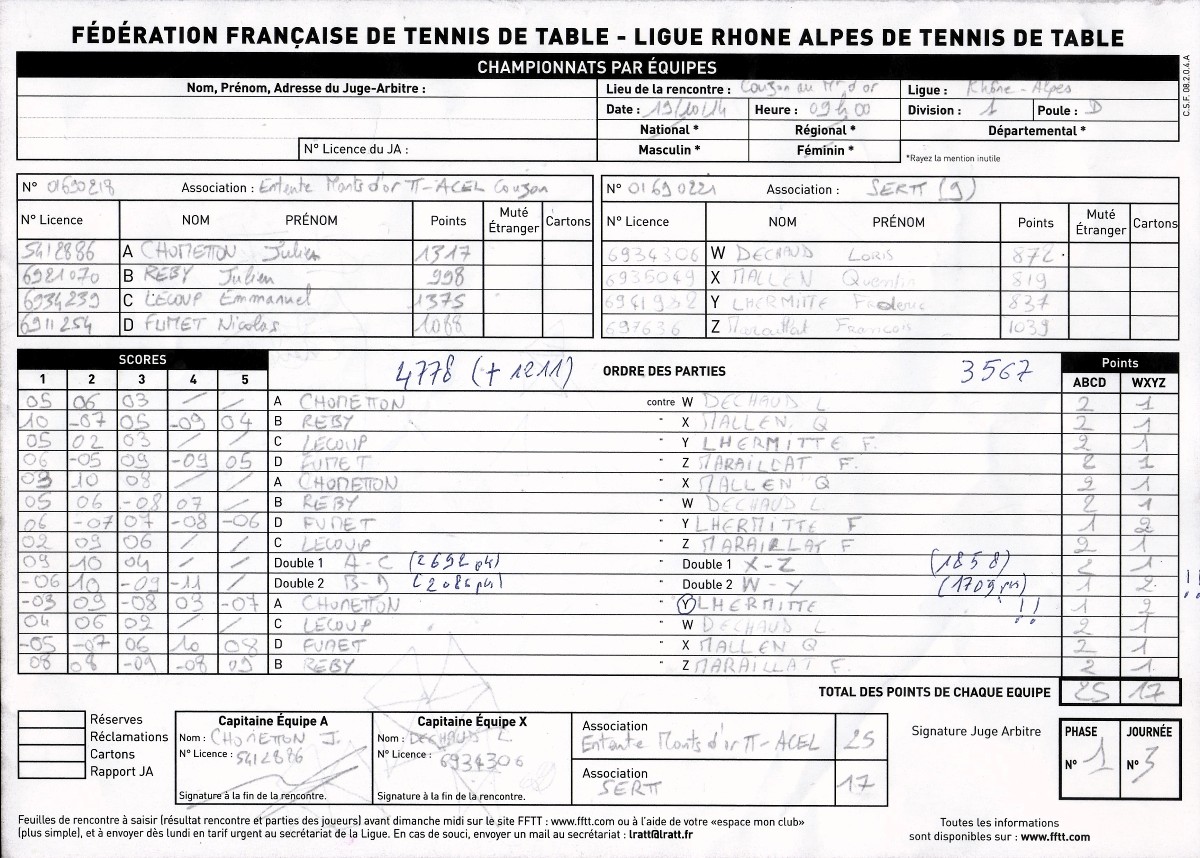 FÉDÉRATION FRANÇAISE DE TENNIS DE TABLE - LIGUE RHONE ALPES DE TENNIS DE TABLE
CHAMPIONNATS PAR ÉQUIPES
C.S.F. 08.2.0.4.A
Nom, Prénom, Adresse du Juge-Arbitre :
N° Licence du JA :
Lieu de la rencontre : Couzon au Mt d'or
Ligue : Rhône - Alpes
Date : 19/10/14 Heure : 09h00 Division : 1 Poule : D
National * Régional * Départemental *
Masculin * Féminin * *Rayez la mention inutile
N° 01690218 Association : Entente Monts d'or TT-ACEL Couzon
N° Licence NOM PRÉNOM Points Muté Étranger Cartons
5412886 A CHOMETTON Julien 1317
6921070 B REBY Julien 998
6934239 C LECOUP Emmanuel 1375
6911254 D FUMET Nicolas 1088
N° 01690221 Association : SERTT (9)
N° Licence NOM PRÉNOM Points Muté Étranger Cartons
6934306 W DECHAUD LORIS 872
6935049 X MALLEN Quentin 819
6941952 Y LHERMITTE Frederic 837
697636 Z Maraillat Francois 1039
SCORES 4778 (+1211) ORDRE DES PARTIES 3567 Points
1 2 3 4 5 ABCD WXYZ
05 06 03 / / A CHOMETTON contre W DECHAUD L 2 1
10 -07 05 -09 04 B REBY " X MALLEN. Q 2 1
05 02 03 / / C LECOUP " Y LHERMITTE F. 2 1
06 -05 09 -09 05 D FUMET " Z MARAILLAT F. 2 1
09 10 08 / / A CHOMETTON " X MALLEN Q 2 1
05 06 -08 07 / B REBY " W DECHAUD L 2 1
06 -07 07 -08 -06 D FUMET " Y LHERMITTE F 1 2
02 09 06 / / C LECOUP " Z MARAILLAT F 2 1
09 10 04 / / Double 1 A-C (2692 pts) " Double 1 X-Z (1858) 2 1
-06 10 -09 -11 / Double 2 B-D (2086 pts) " Double 2 W-Y (1709 pts) 1 2 !!
-03 09 -08 03 -07 A CHOMETTON " Y LHERMITTE !! 1 2
04 06 02 / / C LECOUP " W DECHAUD L 2 1
-05 -07 06 10 08 D FUMET " X MALLEN Q 2 1
08 08 -09 -08 09 B REBY " Z MARAILLAT F. 2 1
TOTAL DES POINTS DE CHAQUE EQUIPE 25 17
Réserves
Réclamations
Cartons
Rapport JA
Capitaine Équipe A
Nom : CHOMETTON J.
N° Licence : 5412886
Signature à la fin de la rencontre.
Capitaine Équipe X
Nom : DECHAUD L
N° Licence : 6934306
Signature à la fin de la rencontre.
Association
Entente Monts d'or TT-ACEL 25
Association
SERTT 17
Signature Juge Arbitre
PHASE N° 1
JOURNÉE N° 3
Feuilles de rencontre à saisir (résultat rencontre et parties des joueurs) avant dimanche midi sur le site FFTT : www.fftt.com ou à l'aide de votre «espace mon club»
(plus simple), et à envoyer dès lundi en tarif urgent au secrétariat de la Ligue. En cas de souci, envoyer un mail au secrétariat : lratt@lratt.fr
Toutes les informations
sont disponibles sur : www.fftt.com